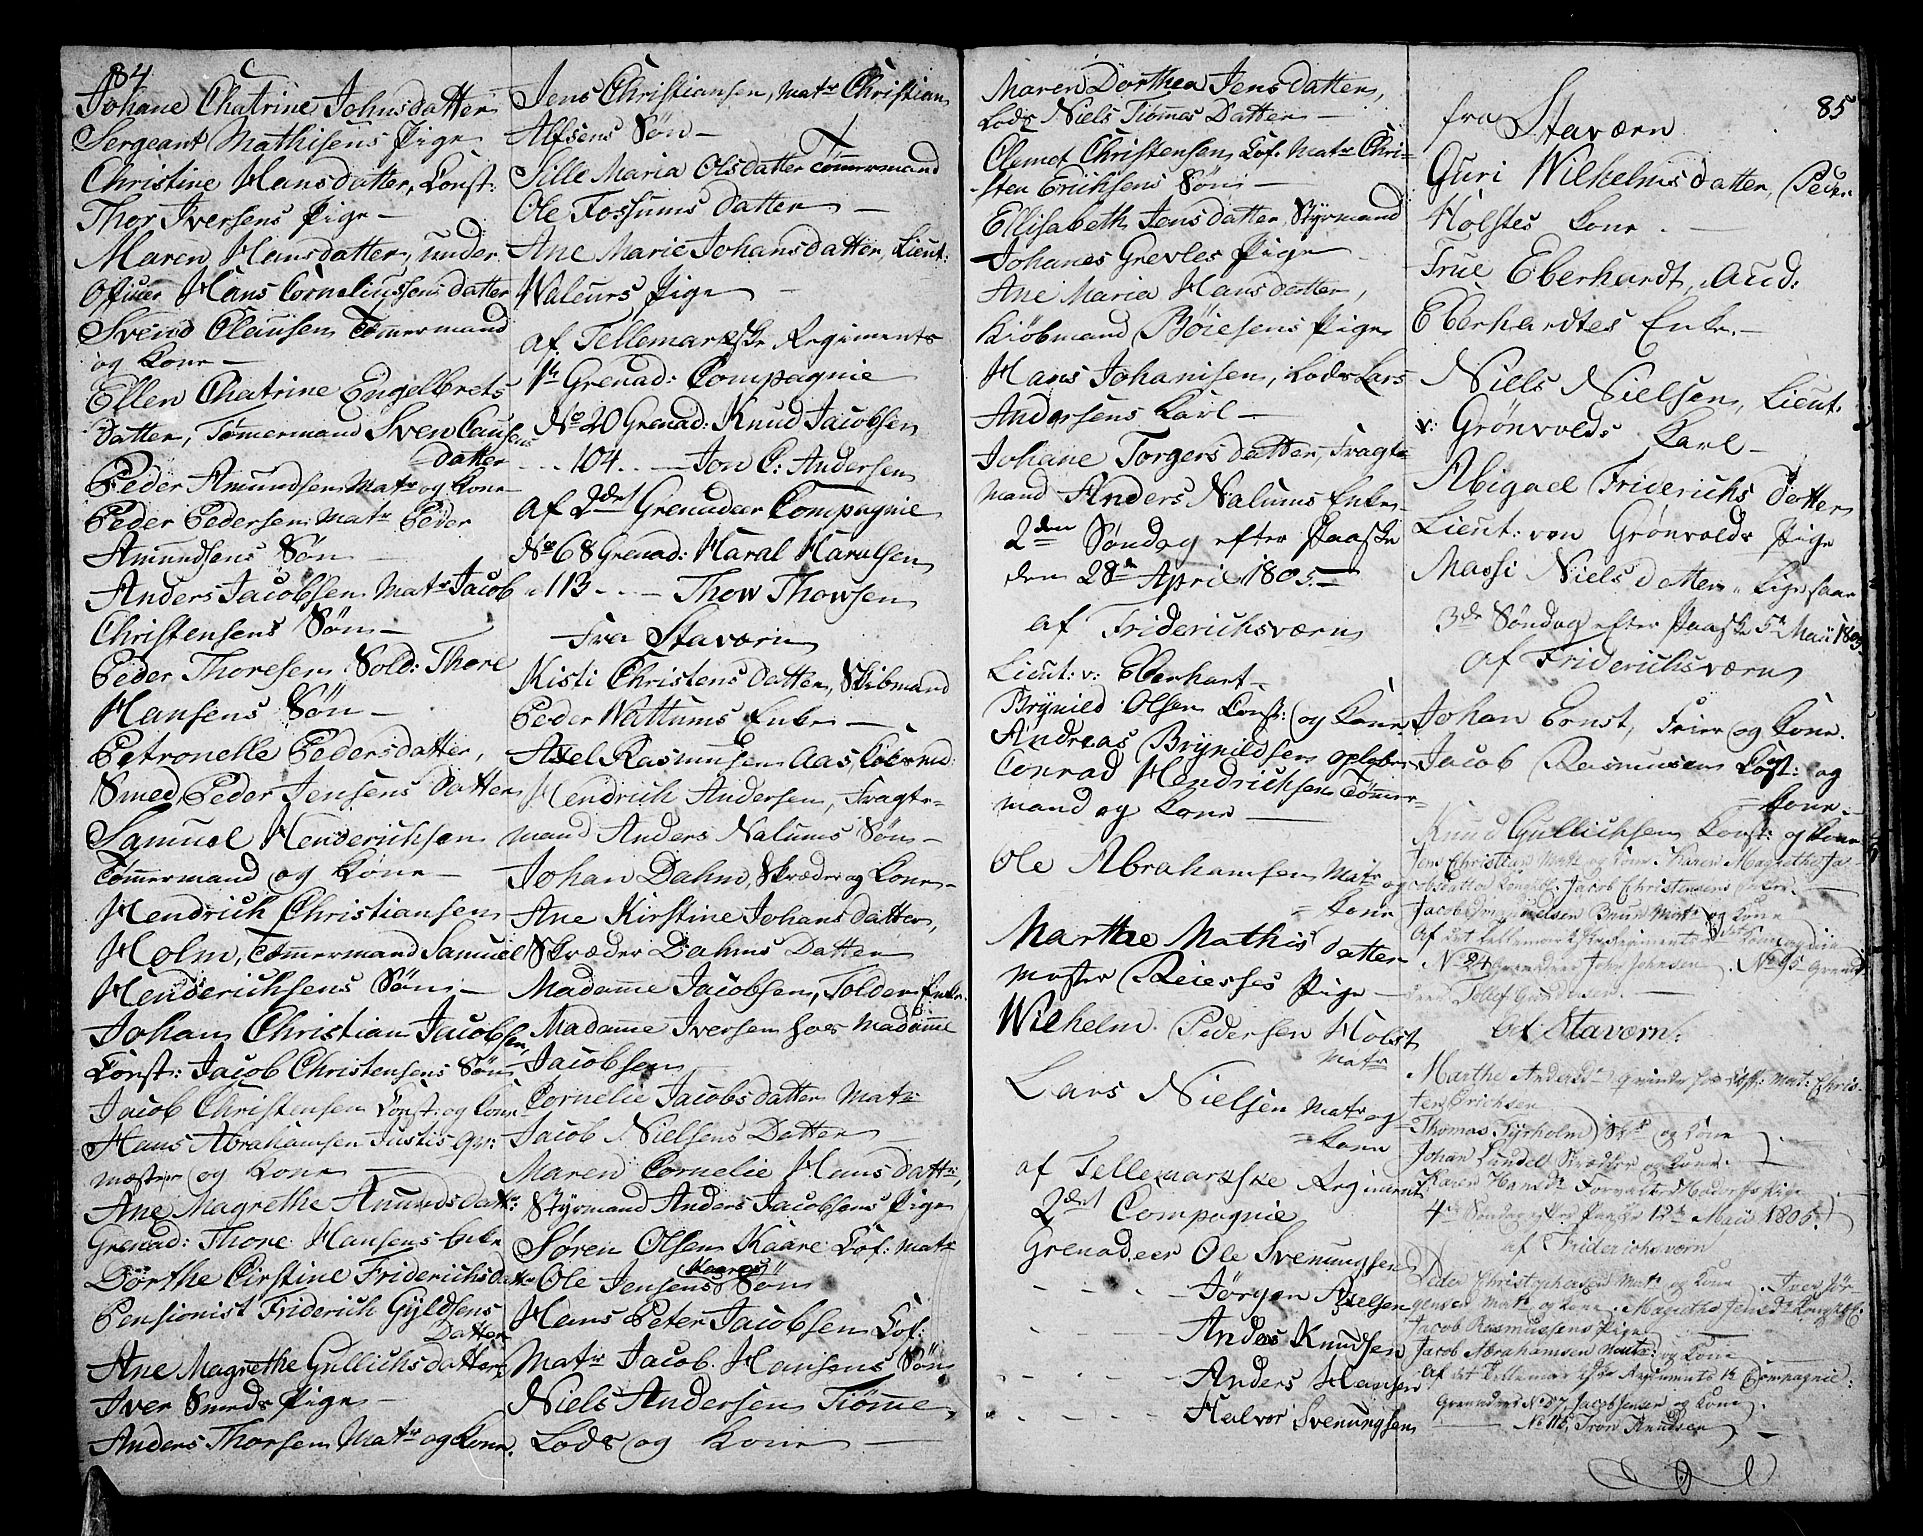 84
Johane Chatrine Johnsdatter
Sergeant Mathisens Pige
Christine Hansdatter, Const:
Thor Iversens Pige —
Maren Hansdatter, under
officer Hans Corneliussens datter
Svend Clausen Tømermand
og Kone —
Ellen Chatrine Engelbrets
datter, Tømermand Sven Clausens
datter
Peder Amundsen Matr og Kone
Peder Pedersen Matr Peder
Amundsens Søn —
Anders Jacobsen Matr Jacob
Christensens Søn —
Peder Thoresen Sold: Thore
Hansens Søn —
Petronelle Pedersdatter,
Smed Peder Jensens datter
Samuel Henderichsen
Tømmermand og Kone —
Hendrich Christiansen
Holm, Tømmermand Samuel
Henderichsens Søn —
Johan Christian Jacobsen,
Const: Jacob Christensens Søn
Jacob Christensen Const: og Kone
Hans Abrahamsen Justis
mester og Kone —
Ane Magrethe Amundsdattr:
Grenad: Thore Hansens Enke
Dorthe Cirstine Friderichsdattr
Pensionist Friderich Gyldsens
Datter
Ane Magrethe Gullichsdatter,
Iver Smeds Pige —
Anders Thorsen Matr og Kone.
Jens Christiansen, Matr Christian
Alfsens Søn —
Sille Maria Olsdatter Tømermand
Ole Fossums datter —
Ane Marie Johansdatter, Lieut:
Waleurs Pige —
af Tellemarkske Regiments
1te Grenad: Compagnie
No 20 Grenad: Knud Jacobsen
... 104 .. — Jon C: Andersen
af 2det Grenadeer Compagnie
No 68 Grenad: Haral Haralsen
" 113 .. — Thow Thowsen
Fra Staværn
Kisti Christensdatter, Skibmand
Peder Wattums Enke —
Axel Rasmusen Aas, Købmd:
Hendrich Andersen, Fragte-
mand Anders Nalums Søn —
Johan Dahm, Skræder og Kone —
Ane Kirstine Johansdatter,
Skræder Dahms Datter
Madame Jacobsen, Tolder Enke.
Madamme Iversen hoes Madamme
Jacobsen
Cornelie Jacobsdatter Matr:
Jacob Nielsens Datter —
Maren Cornelie Hansdattr,
Styrmand Anders Jacobsens Pige
Søren Olsen Kaare Cof: Matr
Ole Jensens Kaares Søn
Hans Peter Jacobsen Cof:
Matr Jacob Hansens Søn
Niels Andersen Tiømme,
Lods og Kone —
Maren Dorthea Jensdatter,
Lods Niels Tiømes Datter —
Clemet Christensen Cof. Matr Chri-
sten Erichsens Søn —
Ellisabeth Jensdatter Styrmand
Johanes Grevles Pige
Ane Maria Hansdatter,
Kiøbmand Bøiesens Pige
Hans Johanisen, Lods Lars
Andersens Karl —
Johane Torgersdatter, Fragte
mand Anders Nalums Enke
2den Søndag efter Paaske
den 28de April 1805 —
af Friderichsværn
Lieut: v: Eberhart —
Brynild Olsen Const: og Kone
Andreas Brynildsen
Conrad Hendrichsen Tømmer-
mand og Kone —
Ole Abrahamsen Matr og
Kone
Marthe Mathisdatter
Mester Reiesses Pige —
Wilhelm Pedersen Holst
Matr
Lars Nielsen Matr og
Kone
af Tellemarkske Regiment
2det Compagnie
Grenadeer Ole Svenungsen
- - - Jørgen Axelsen
- - - Anders Knudsen
- - - Anders Hansen
- - - Halvor Svenungsen
85
fra Staværn
Guri Wilhelmsdatter, Peder
Holstes Kone. —
Frue Eberhardt, Aud:
Eberhardtes Enke. —
Niels Nielsen, Lieut.
v: Grönvolds Karl —
Abigael Friderichsdatter
Lieut: von Grönvolds Pige
Massi Nielsdatter
3de Søndag efter Paaske 5te Maii 1805
af Friderichsværn
Johan Ernst, Feier og Kone.
Jacob Rasmusen Const: og
Kone.
Knud Gullichsen Const: og Kone
Jens Christian Matr og Kone. Karen Magrethe Ja-
cobsdatter Jacob Christensens
Jacob Brun Matr og Kone
Af det Tellemarkske Regiments Compagnie
No 24 Grenadeer John Johnsen. No 95 Grenad
deer Tollef
af Staværn:
Marthe Andersdr hos Cof: Mat: Chris-
ten Erichsen
Thomas Tyrholm og Kone
Johan Lundel Skræder og Kone.
Karen Hansdr Forvalter Pige
4de Søndag efter Paaske 12te Maii 1805
af Friderichsværn
Peder Christophersen Matr og Kone. Iver Jør-
gensen Matr og Kone. Magrethe Jensdr
Jacob Rasmussens Pige
Jacob Abrahamsen Matr: og Kone
Af det Tellemarkske Regiments 1te Compagnie:
Grenadeer No 57 Jacob Jensen og Kone.
— No 116, Iron Knudsen